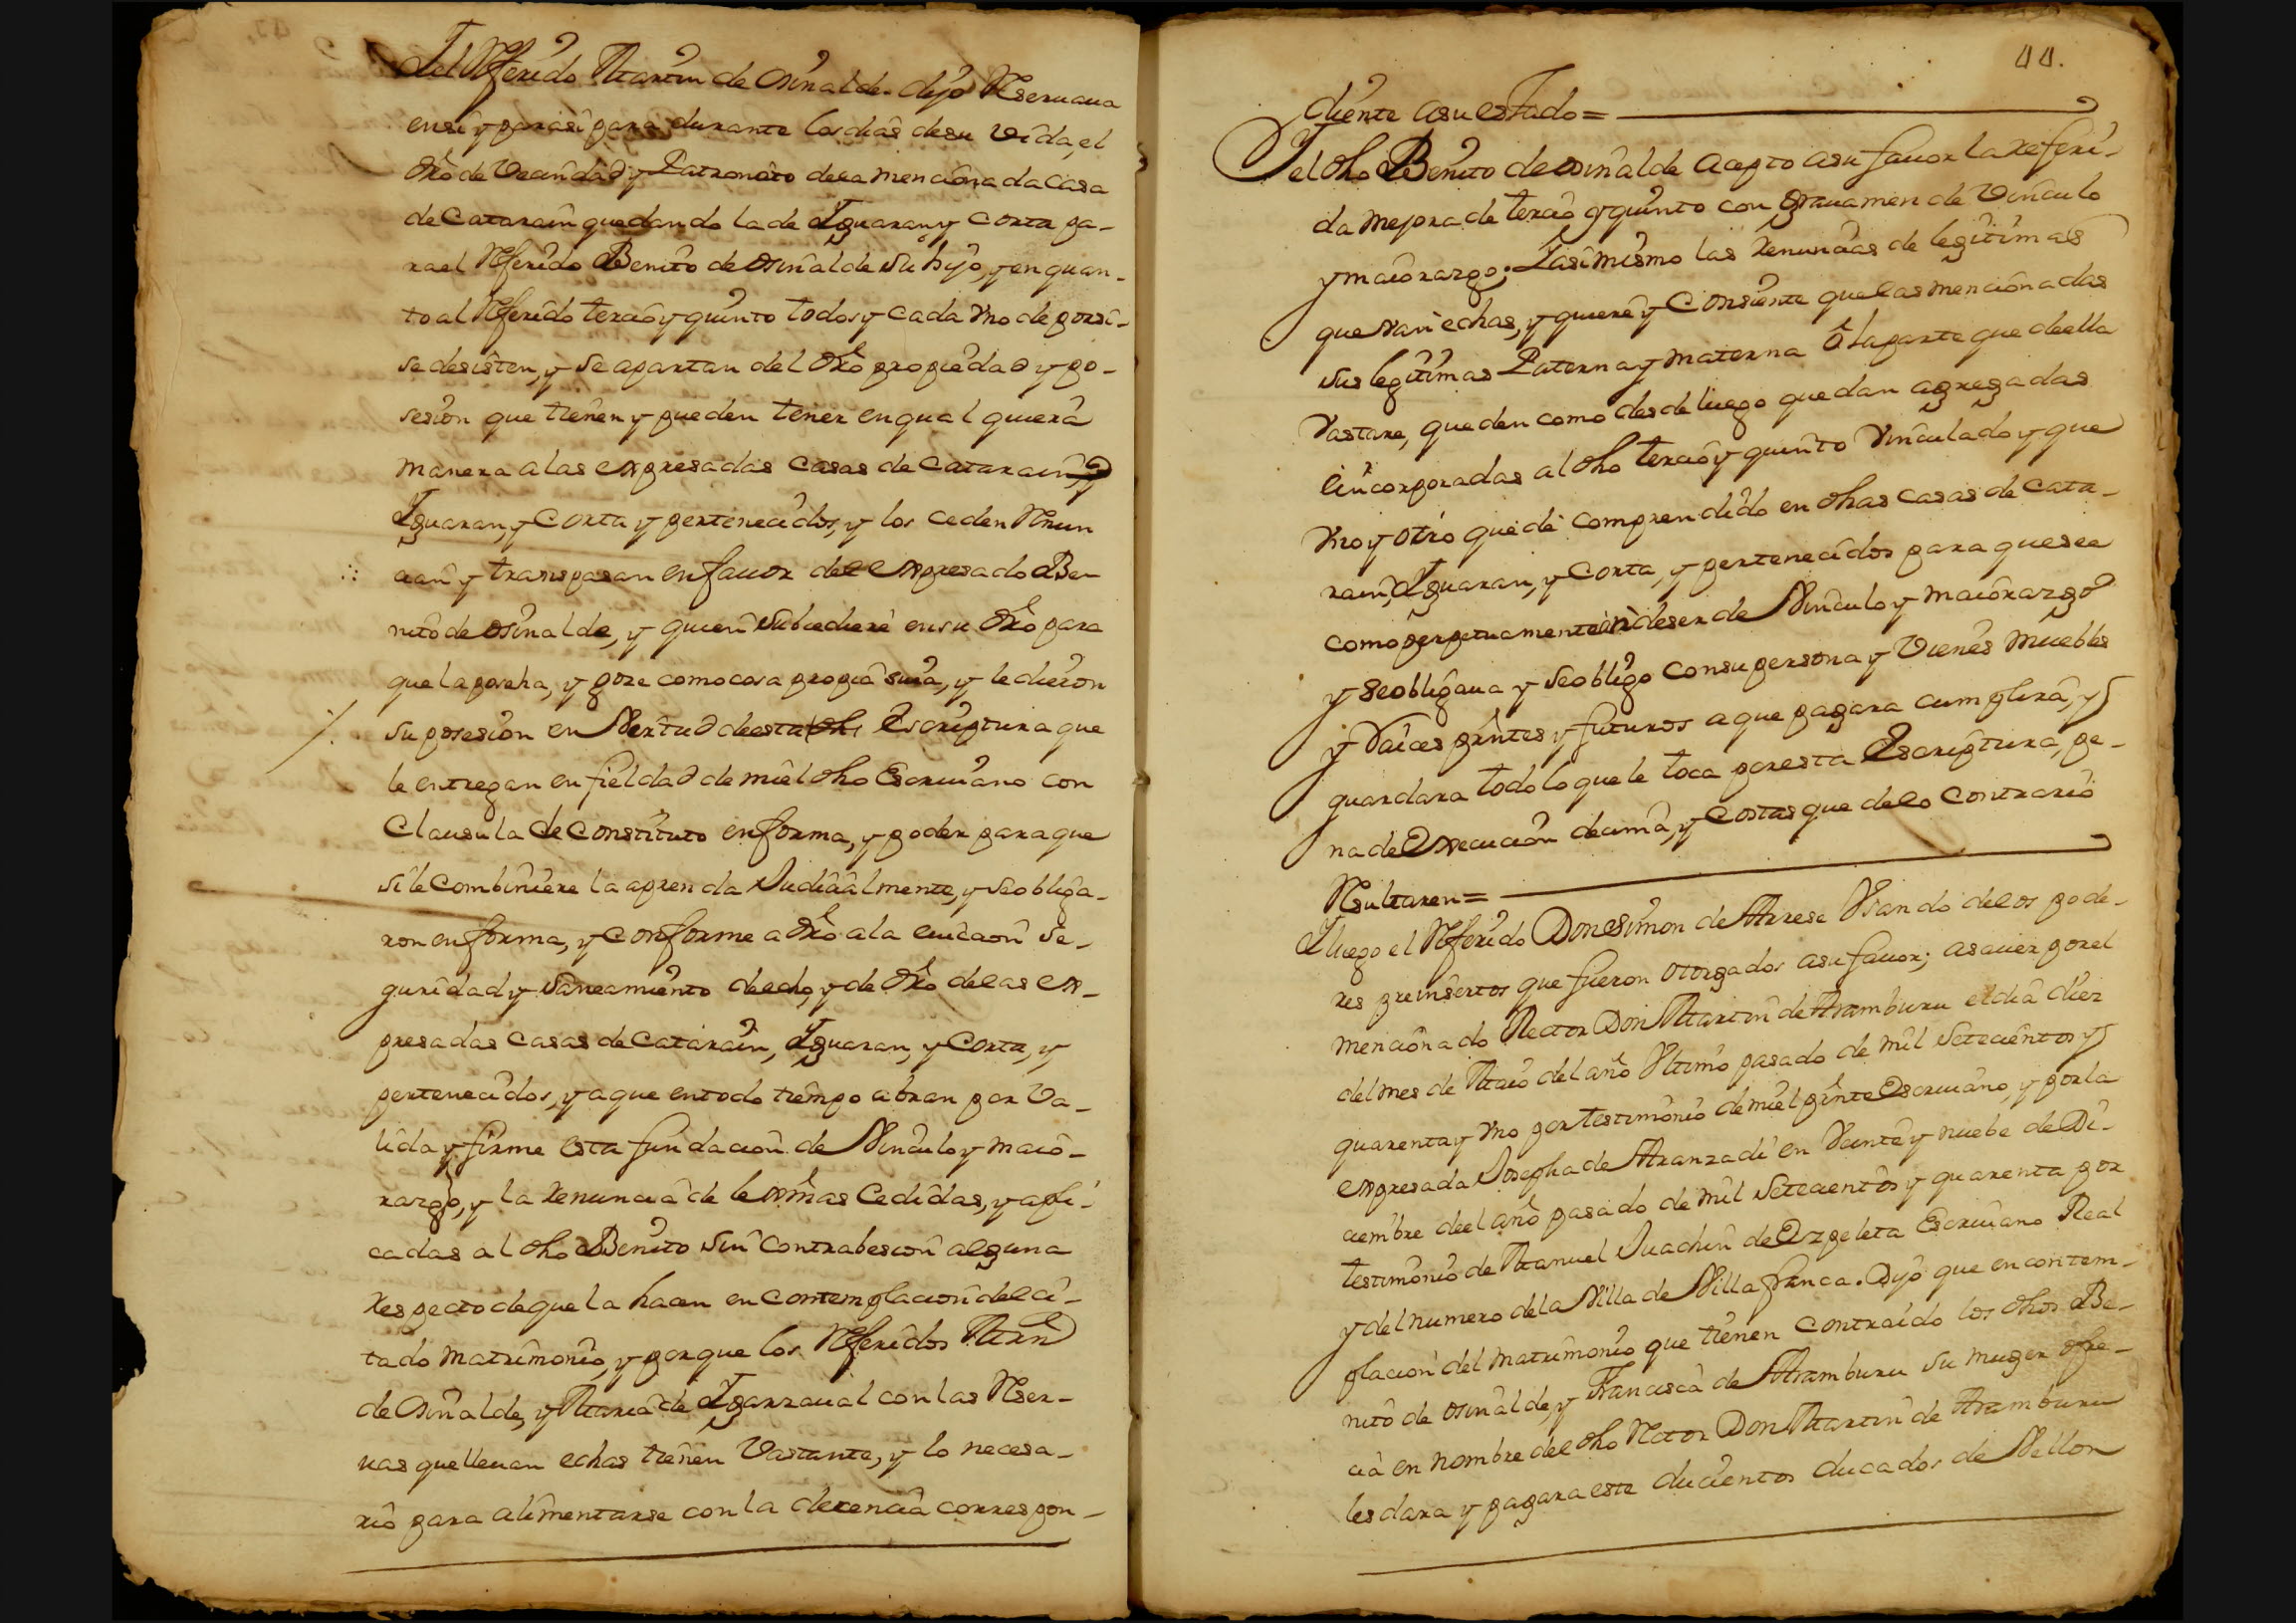 Y el Referido Martin de Osinalde dijo Reseruaua
en si y para si para durante los dias de su Vida, el
dr̃o de Vecindad y Patronato de la mencionada casa
de Catarain quedando la de Yguaran y Corta pa-
ra el Referido Benito de Osinalde su hijo, y en quan-
to al Referido tercio y quinto todos y cada Vno de por si
se desisten, y se apartan del dr̃o propiedad y po-
sesion que tienen y pueden tener en qual quiera
manera a las expresadas casas de Catarain, y
Yguaran, y Corta y pertenecidos, y los ceden Renun
cian y transpasan en fauor del expresado Be-
nito de Osinalde, y quien subcediere en su dr̃o para
que la poseha, y goze como cosa propia suia, y le dieron
su posesion en Vertud de esta Escriptura que
le entregan en fieldad de mi el dho Escriuano con
Clausula de constituto en forma, y poder para que
si le combiniere la aprenda Judicialmente, y se obliga-
ron en forma, y conforme a dr̃o a la euiccion se-
guridad y saneamiento de echo, y de dr̃o de las ex-
presadas casas de Catarain, Yguaran, y Corta, y
pertenecidos, y a que en todo tiempo abran por Va-
lida y firme esta fundacion de Vinculo y maio-
razgo, y la Renuncia de lexmas Cedidas, y apli-
cadas al dho Benito sin contrabercion alguna
Respecto de que la hacen en contemplacion del ci-
tado matrimonio, y porque los Referidos Mrn
de Osinalde, y Maria de Ygarzaual con las Reser-
uas que lleuan echas tienen Vastante, y lo necesa-
rio para alimentarse con la decencia correspon-
44.
diente a su estado=
Y el dho Benito de Osinalde acepto a su fauor la referi-
da mejora de tercio y quinto con Grauamen de Vinculo
y maiorazgo; Y asi mismo las Renuncias de legitimas
que Van echas, y quiere y Consiente que las mencionadas
sus legitimas Paterna y materna ô la parte que de ella
Vastare, queden como desde luego quedan agregadas
e incorporadas al dho tercio y quinto Vinculado y que
Vno y otro quede comprendido en dhas casas de Cata-
rain, Yguaran, y Corta, y pertenecidos para que sea
como perpetuamente an de ser de Vinculo y maiorazgo
y se obligaua y se obligo con su persona y Vienes muebles
y Raices prntes y futuros a que pagara cumplira, y
guardara todo lo que le toca por esta Escriptura, pe-
na de Execucion decima, y costas que de lo contrario
Resultaren=
Y luego el Referido Don Simon de Arrese Vsando de los pode-
res preinsertos que fueron otorgados a su fauor; a sauer por el
mencionado Rector Don Martin de Aramburu el dia diez
del mes de Maio del año Vltimo pasado de mil setecientos y
quarenta y Vno por testimonio de mi el prnte Escriuano, y por la
expresada Josepha de Aranzadi en Veinte y nuebe de Di-
ciembre de el año pasado de mil setecientos y quarenta por
testimonio de Manuel Juachin de Ezpeleta Escriuano Real
y del numero de la Villa de Villafranca. Dijo que en contem-
placion del matrimonio que tienen contraido los dhos Be-
nito de Osinalde, y Francisca de Aramburu su muger ofre-
cia en nombre del dho Rector Don Martin de Aramburu
les dara y pagara este ducientos ducados de Vellon